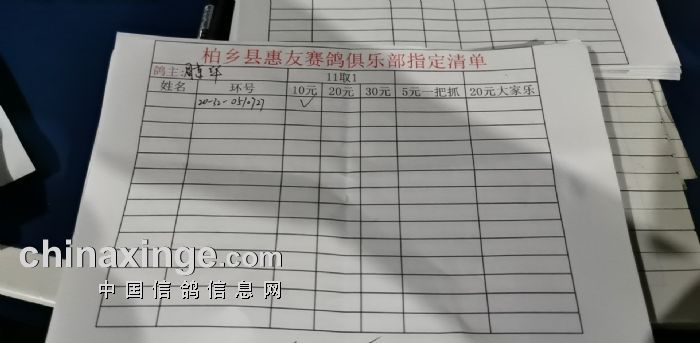 柏乡县惠友赛鸽俱乐部指定清单
鸽主:
11取1
姓名 环号 10元 20元 30元 5元一把抓 20元大家乐
✓
chinaxinge.com
中国信鸽信息网